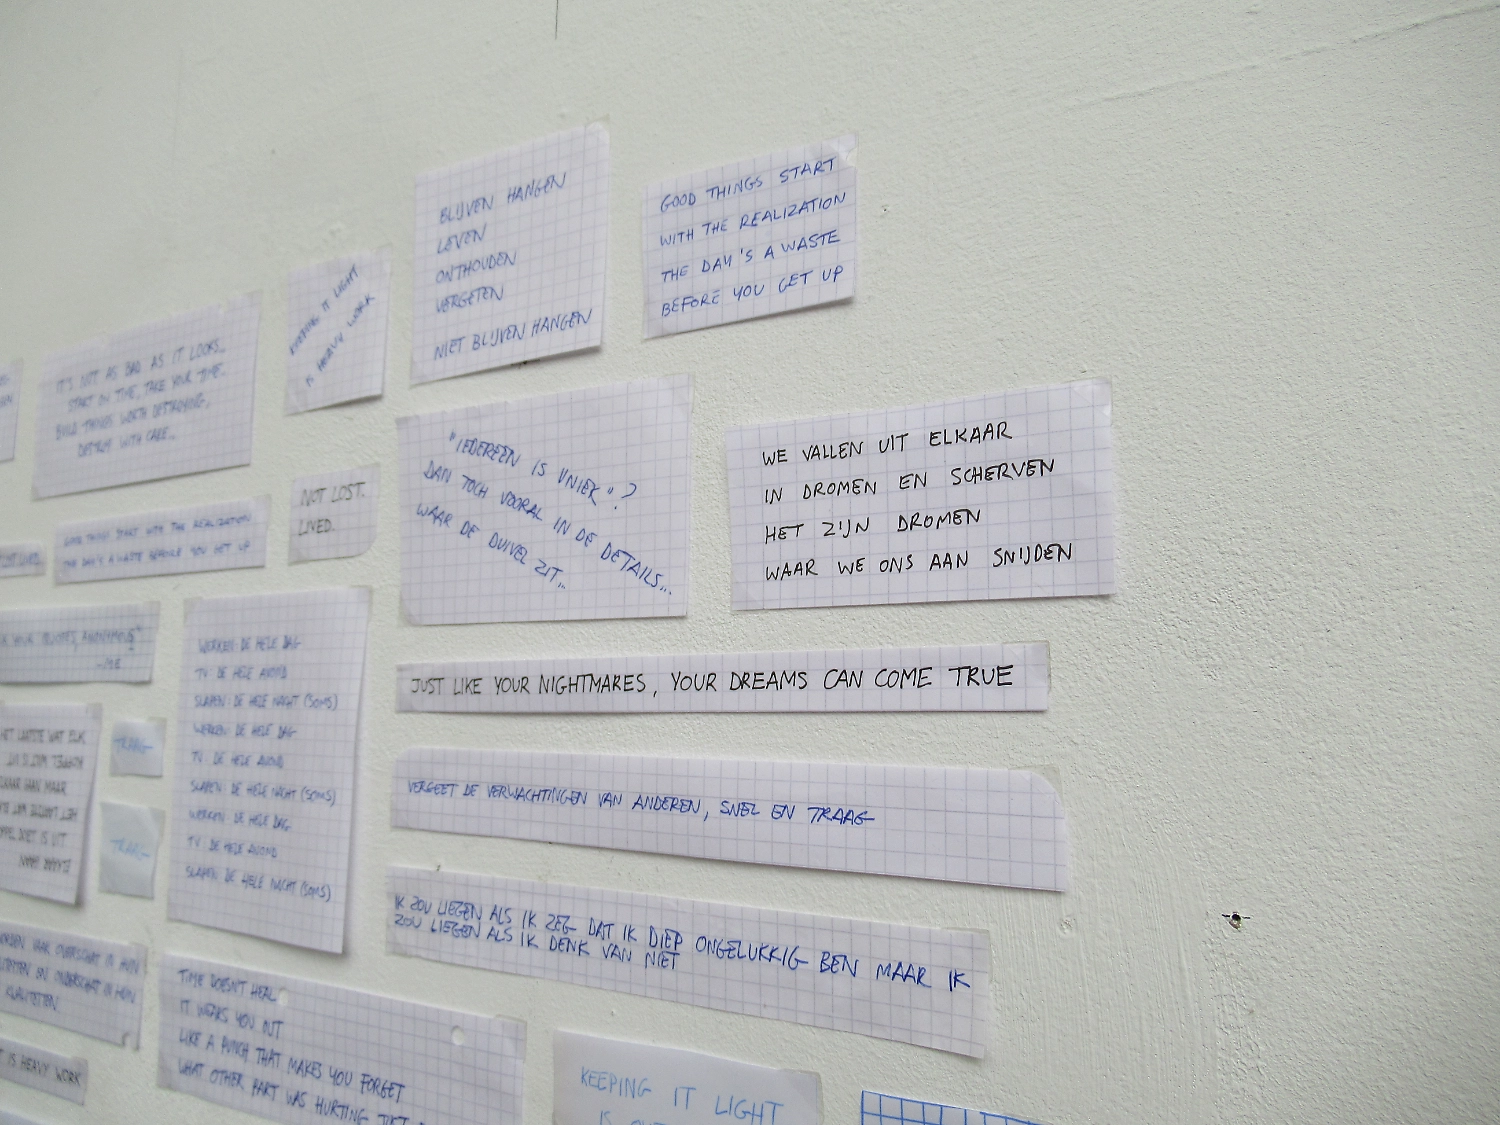 BLIJVEN HANGEN
LEVEN
ONTHOUDEN
VERGETEN
NIET BLIJVEN HANGEN
GOOD THINGS START
WITH THE REALIZATION
THE DAY'S A WASTE
BEFORE YOU GET UP
KEEPING IT LIGHT
IS HEAVY WORK
IT'S NOT AS BAD AS IT LOOKS...
START ON TIME, TAKE YOUR TIME.
BUILD THINGS WORTH DESTROYING.
DESTROY WITH CARE...
"IEDEREEN IS UNIEK"?
DAN TOCH VOORAL IN DE DETAILS...
WAAR DE DUIVEL ZIT...
WE VALLEN UIT ELKAAR
IN DROMEN EN SCHERVEN
HET ZIJN DROMEN
WAAR WE ONS AAN SNIJDEN
NOT LOST.
LIVED.
GOOD THINGS START WITH THE REALIZATION
THE DAY'S A WASTE BEFORE YOU GET UP
LIVED.
YOUR QUOTES, ANONYMOUS"
-ME
WERKEN: DE HELE DAG
TV: DE HELE AVOND
SLAPEN: DE HELE NACHT (SOMS)
WERKEN: DE HELE DAG
TV: DE HELE AVOND
SLAPEN: DE HELE NACHT (SOMS)
WERKEN: DE HELE DAG
TV: DE HELE AVOND
SLAPEN: DE HELE NACHT (SOMS)
JUST LIKE YOUR NIGHTMARES, YOUR DREAMS CAN COME TRUE
HET LAATSTE WAT ELK
ELKAAR HAAN MAAR
DOET IS UIT
TRAAG
TRAAG
VERGEET DE VERWACHTINGEN VAN ANDEREN, SNEL EN TRAAG
IK ZOU LIEGEN ALS IK ZEG DAT IK DIEP ONGELUKKIG BEN MAAR IK
ZOU LIEGEN ALS IK DENK VAN NIET
WORDEN VAAK OVERSCHAT IN HUN
EN ONDERSCHAT IN HUN
KWALITEITEN.
TIME DOESN'T HEAL
IT WEARS YOU OUT
LIKE A PUNCH THAT MAKES YOU FORGET
WHAT OTHER PART WAS HURTING JUST
IS HEAVY WORK
KEEPING IT LIGHT
IS